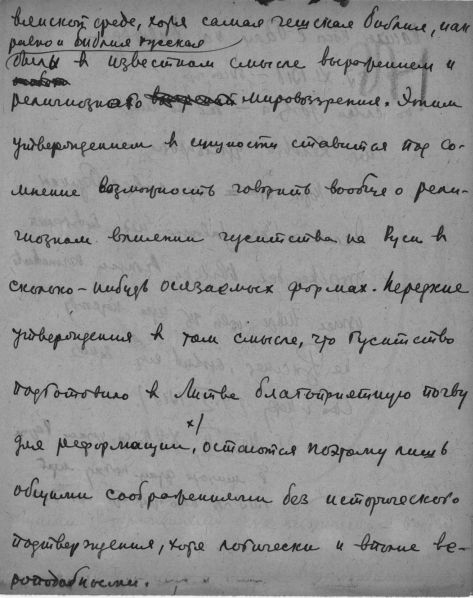 венской среде, хотя самая чешская библия, как
равно и библия русская
были в известном смысле выражением и
религиозного мировоззрения. Этим
утверждением в сущности ставится под со-
мнение возможность говорить вообще о рели-
гиозном влиянии гуситства на Руси в
сколько-нибудь осязаемых формах. Нередкие
утверждения в том смысле, что Гуситство
подготовило в Литве благоприятную почву
для реформации, x/ остаются поэтому лишь
общими соображениями без исторического
подтверждения, хотя логически и вполне ве-
роподобными.